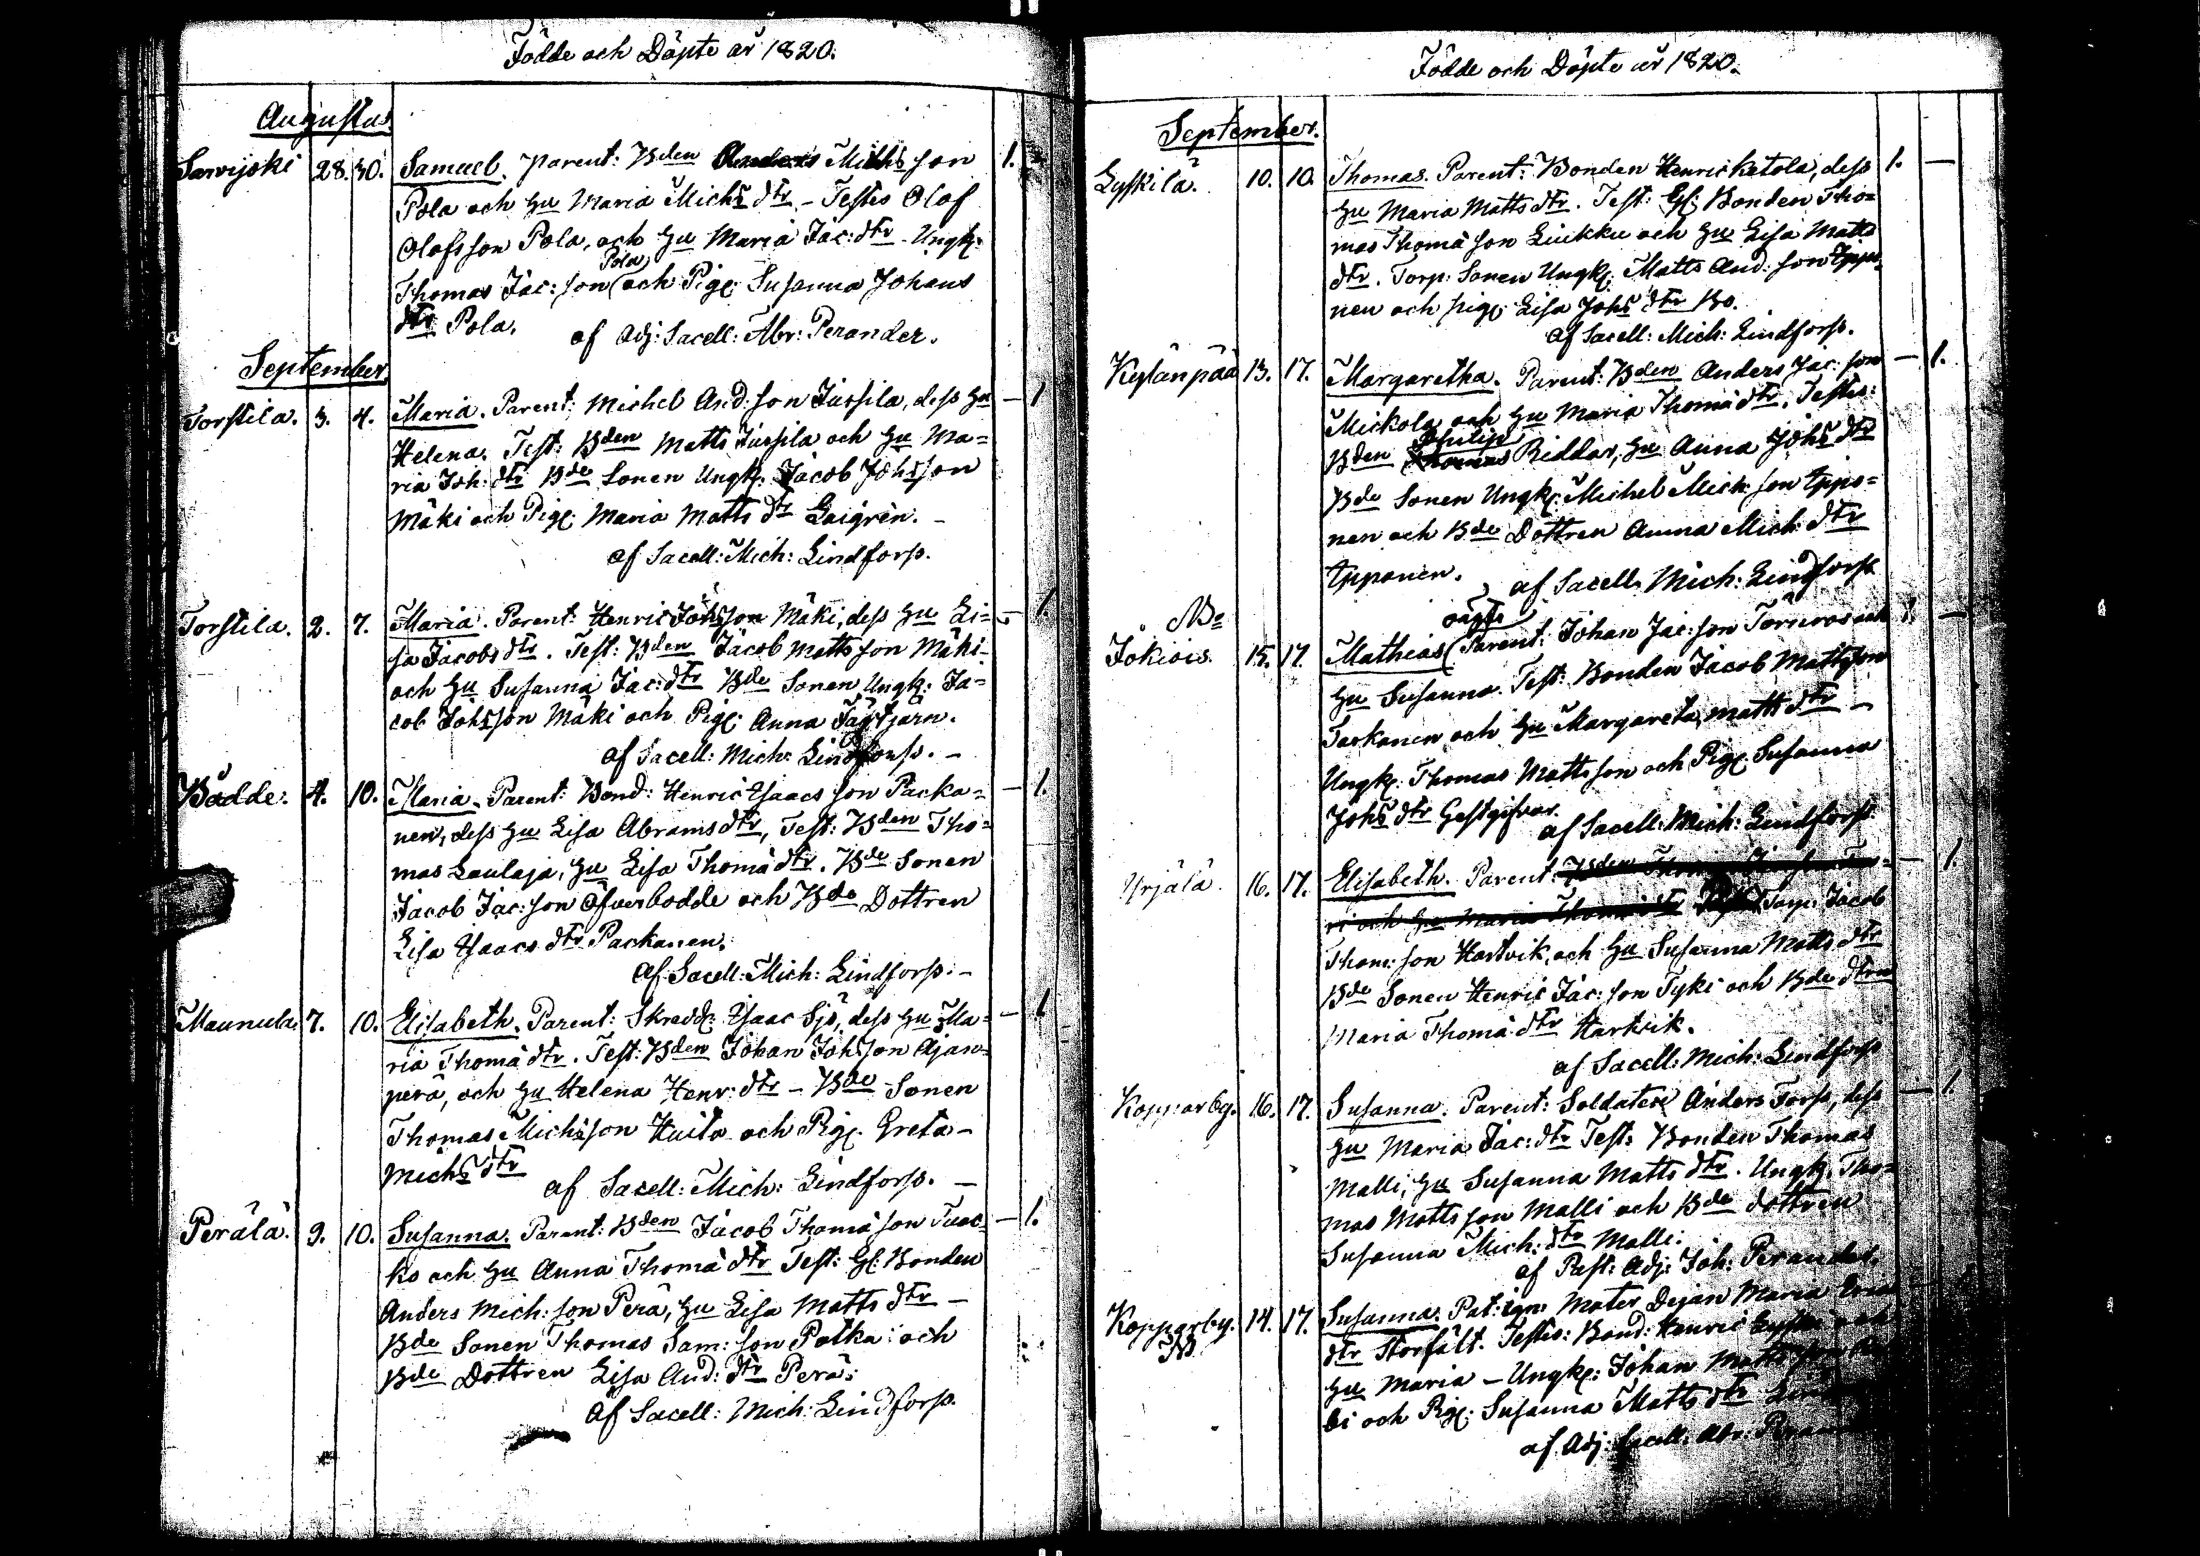 Födde och Döpte år 1820.
Augustus
Sarvijoki 28. 30. Samuel. Parent: Bden Michs son 1.
Pola och Hu Maria Michs dtr - Testes Olof
Olofsson Pola, och Hu Maria Jac: dtr - Ungk:
Pola
Thomas Jac: son och Pig: Susanna Johans
dtr Pola.
af Adj: Sacell: Abr: Perander.
September
Torstila. 3. 4. Maria. Parent: Michel And: son Jussila, dess Hu — 1
Helena. Test: Bden Matts Jussila och Hu Ma=
ria Joh: dtr Bde Sonen Ungk: Jacob Johsson
Mäki och Pig: Maria Matts dtr Gaigrén. -
af Sacell: Mich: Lindforss.
Torstila. 2. 7. Maria. Parent: Henric Johsson Mäki, dess Hu Li= — 1.
sa Jacobs dtr. Test: Bden Jacob Mattsson Mäki-
och Hu Susanna Jac: dtr Bde Sonen Ungk: Ja=
cob Johsson Mäki och Pig: Anna
af Sacell: Mich: Lindforss. -
Bådde: 4. 10. Maria. Parent: Bond: Henric Isaacs son Packa= — 1.
nen, dess Hu Lisa Abrams dtr, Test: Bden Tho=
mas Laulaja, Hu Lisa Thomæ dtr. Bde Sonen
Jacob Jac: son Öfverbodde och Bde Dottren
Lisa Isaacs dtr Packanen.
af Sacell: Mich: Lindforss. -
Maunula 7. 10. Elisabeth. Parent: Skredd: Isaac Sjö, dess Hu Ma= — 1
ria Thomæ dtr. Test: Bden Johan Johsson Ajan=
perä, och Hu Helena Henr: dtr - Bde Sonen
Thomas Michsson Huita och Pig: Greta -
Michs dtr
af Sacell: Mich: Lindforss. -
Perälä. 9. 10. Susanna. Parent: Bden Jacob Thomæ son — 1.
ko och Hu Anna Thomæ dtr Test: Gl: Bonden
Anders Mich: son Perä, Hu Lisa Matts dtr -
Bde Sonen Thomas Sam: son Potka: och
Bde Dottren Lisa And: dtr Perä:
af Sacell: Mich: Lindforss.
Födde och Döpte år 1820.
September.
Lyskilä. 10. 10. Thomas. Parent: Bonden Henric Ketola, dess 1. —
Hu Maria Matts dtr. Test: Gl: Bonden Tho=
mas Thomæ son Liukku och Hu Lisa Matts
dtr. Torp: Sonen Ungk: Matts And: son Ippo=
nen och Pig: Lisa Johs dtr Bo.
af Sacell: Mich: Lindforss.
Kylänpää 13. 17. Margaretha. Parent: Bden Anders Jac: son — 1.
Mickola och Hu Maria Thomæ dtr. Testes:
Philip
Bden Thomas Riddar, Hu Anna Johs dtr
Bde Sonen Ungk: Michel Mich: son Ippo=
nen och Bde Dottren Anna Mich: dtr
Ipponen.
af Sacell: Mich: Lindforss
NB oägta
Jokiois. 15. 17. Mathias Parent: Johan Jac: son Torneros och 1. —
Hu Susanna. Test: Bonden Jacob Mattsson
Tarkanen och Hu Margareta Matts dtr -
Ungk: Thomas Mattsson och Pig: Susanna
Johs dtr Gestgifvar.
af Sacell: Mich: Lindforss.
Yrjälä. 16. 17. Elisabeth. Parent: — 1.
ri och Hu Maria Thomæ dtr Torp: Jacob
Thom: son Hartvik, och Hu Susanna Matts dtr
Bde Sonen Henric Jac: son Tyki och Bde dtren
Maria Thomæ dtr Hartvik.
af Sacell: Mich: Lindforss
Kopparby. 16. 17. Susanna. Parent: Soldaten Anders Forss, dess — 1.
Hu Maria Jac: dtr Test: Bonden Thomas
Malli, Hu Susanna Matts dtr. Ungk: Tho=
mas Matts son Malli och Bde dottren
Susanna Mich: dtr Malli:
af Past: Adj: Joh: Perander.
Kopparby. 14. 17. Susanna. Pat: ign: Mater Dejan Maria
N dtr Storfält. Testes: Bond: Henric och
Hu Maria - Ungk: Johan Matts son
bi och Pig: Susanna Matts dtr
af Adj: Sacell: Abr: Perander